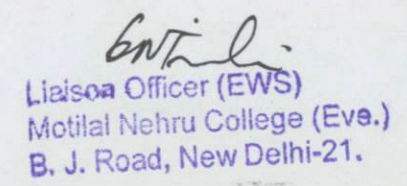 Liaison Officer (EWS)
Motilal Nehru College (Eve.)
B. J. Road, New Delhi-21.